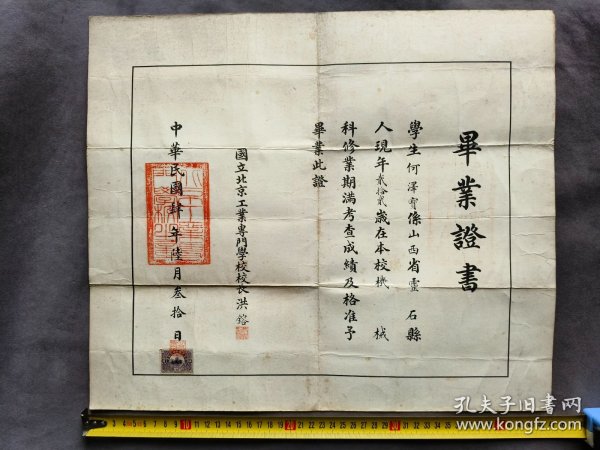 畢業證書
學生何澤寶係山西省靈石縣
人現年貳拾貳歲在本校機械
科修業期滿考查成績及格准予
畢業此證
國立北京工業專門學校校長洪鎔
中華民國肆年陸月叁拾日
孔夫子旧书网
www.kongfz.com